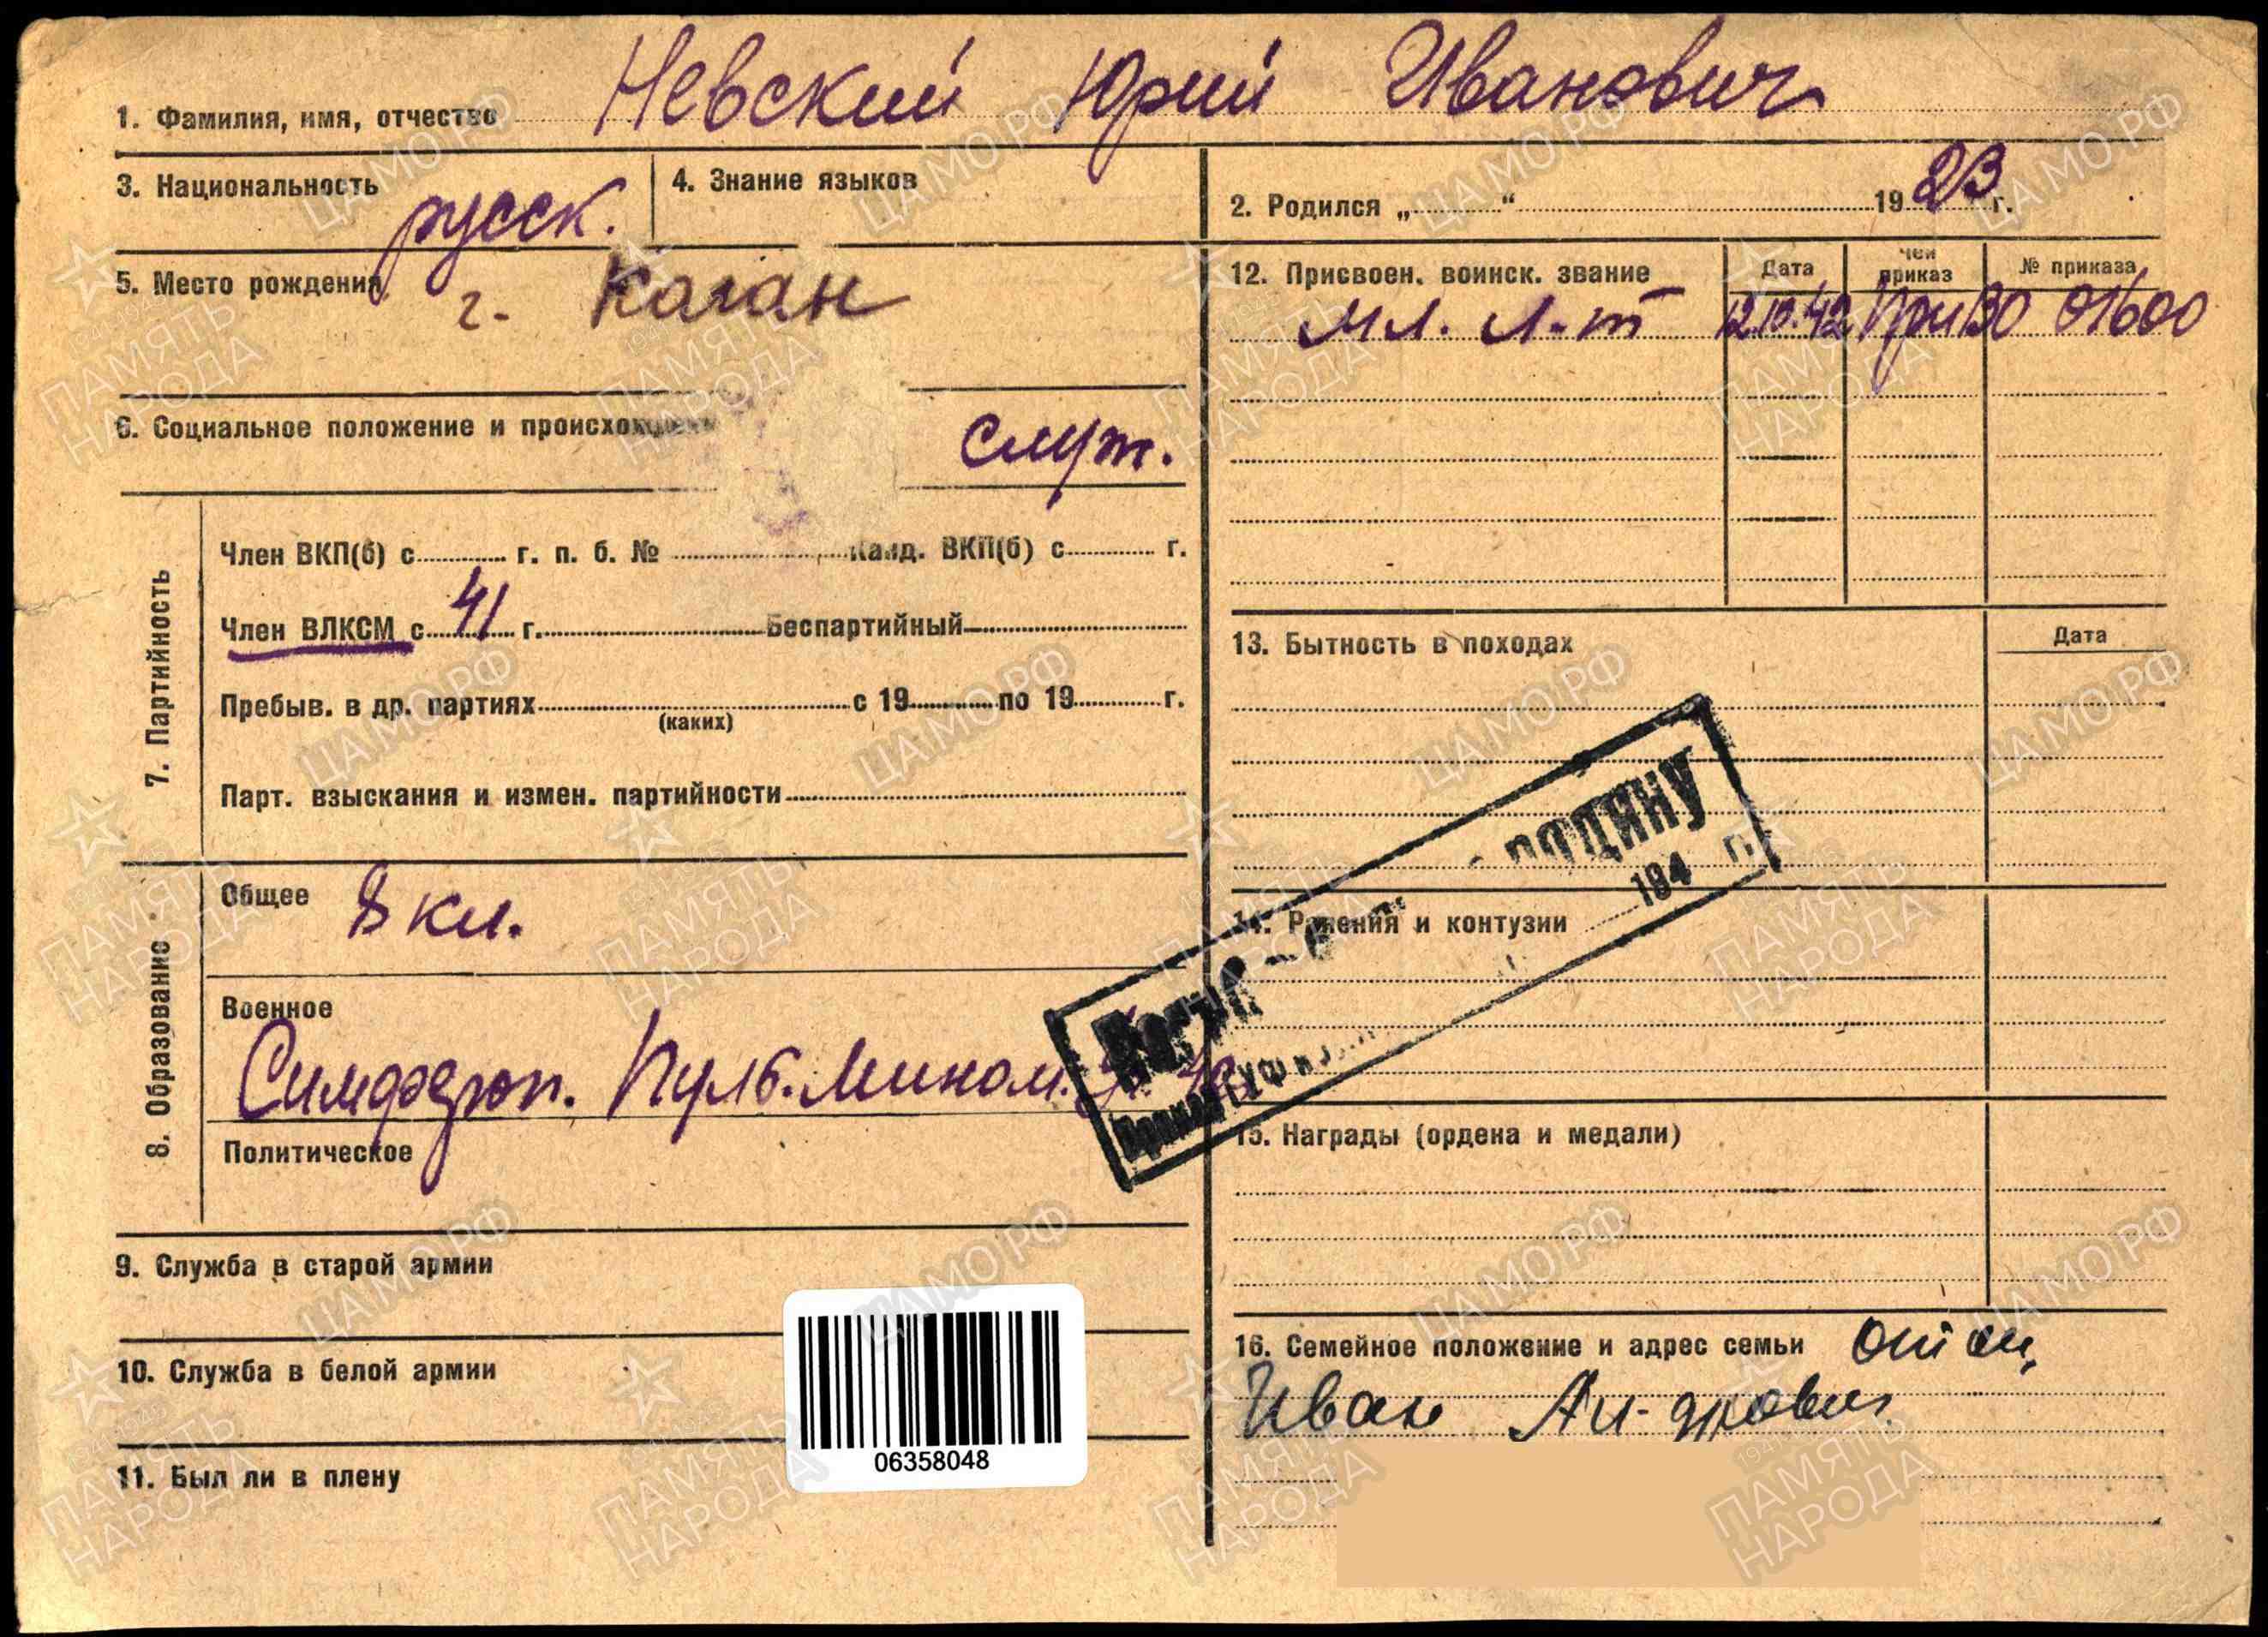 1. Фамилия, имя, отчество Невский Юрий Иванович
3. Национальность русск.
4. Знание языков
2. Родился „ “ 1923 г.
5. Место рождения г. Каган
6. Социальное положение и происхождение служ.
7. Партийность
Член ВКП(б) с г. п. б. № Канд. ВКП(б) с г.
Член ВЛКСМ с 41 г. Беспартийный
Пребыв. в др. партиях с 19 по 19 г.
(каких)
Парт. взыскания и измен. партийности
8. Образование
Общее 8 кл.
Военное
Симфероп. Пул. Мином.
Политическое
9. Служба в старой армии
10. Служба в белой армии
11. Был ли в плену
12. Присвоен. воинск. звание Дата Чей приказ № приказа
мл. л-т 12.10.42 01600
13. Бытность в походах Дата
родину
194 г.
14. Ранения и контузии
15. Награды (ордена и медали)
16. Семейное положение и адрес семьи отец,
Иван
06358048
ЦАМО.РФ
ПАМЯТЬ НАРОДА